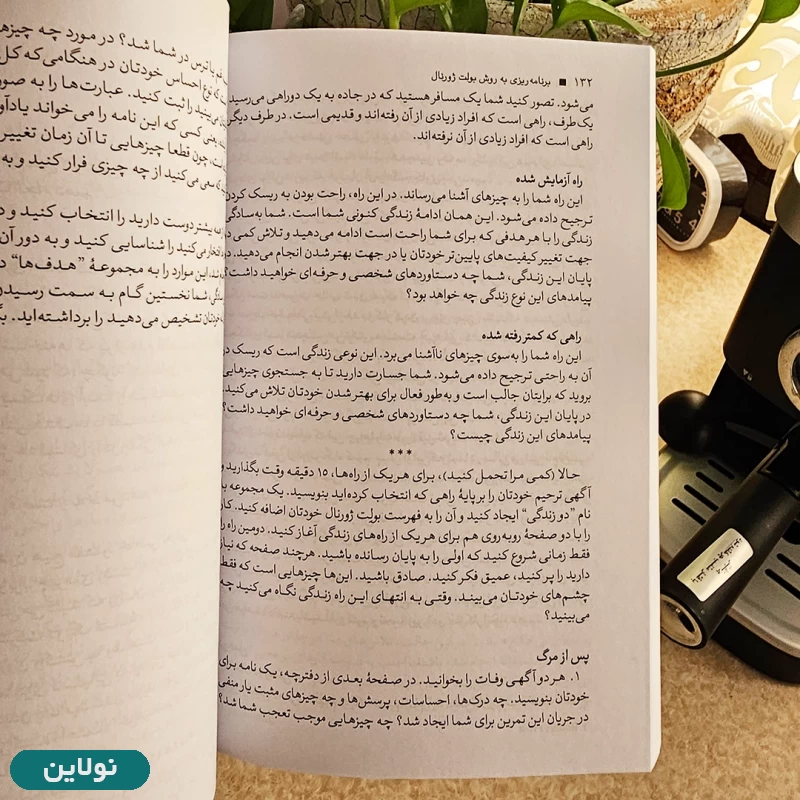 ۱۳۲ ■ برنامه‌ریزی به روش بولت ژورنال
می‌شود. تصور کنید شما یک مسافر هستید که در جاده به یک دوراهی می‌رسید.
یک طرف، راهی است که افراد زیادی از آن رفته‌اند و قدیمی است. در طرف دیگر
راهی است که افراد زیادی از آن نرفته‌اند.
راه آزمایش شده
این راه شما را به چیزهای آشنا می‌رساند. در این راه، راحت بودن به ریسک کردن
ترجیح داده می‌شود. این همان ادامهٔ زندگی کنونی شما است. شما به‌سادگی
زندگی را با هر هدفی که برای شما راحت است ادامه می‌دهید و تلاش کمی در
جهت تغییر کیفیت‌های پایین‌تر خودتان یا در جهت بهتر شدن انجام می‌دهید. در
پایان این زندگی، شما چه دستاوردهای شخصی و حرفه‌ای خواهید داشت؟
پیامدهای این نوع زندگی چه خواهد بود؟
راهی که کمتر رفته شده
این راه شما را به‌سوی چیزهای ناآشنا می‌برد. این نوعی زندگی است که ریسک در
آن به راحتی ترجیح داده می‌شود. شما جسارت دارید تا به جستجوی چیزهایی
بروید که برایتان جالب است و به‌طور فعال برای بهتر شدن خودتان تلاش می‌کنید.
در پایان این زندگی، شما چه دستاوردهای شخصی و حرفه‌ای خواهید داشت؟
پیامدهای این زندگی چیست؟
***
حالا (کمی مرا تحمل کنید)، برای هر یک از راه‌ها، ۱۵ دقیقه وقت بگذارید و
آگهی ترحیم خودتان را بر پایهٔ راهی که انتخاب کرده‌اید بنویسید. یک مجموعه به
نام "دو زندگی" ایجاد کنید و آن را به فهرست بولت ژورنال خودتان اضافه کنید. کار
را با دو صفحهٔ روبه‌روی هم برای هر یک از راه‌های زندگی آغاز کنید. دومین راه را
فقط زمانی شروع کنید که اولی را به پایان رسانده باشید. هر چند صفحه که نیاز
دارید را پر کنید، عمیق فکر کنید. صادق باشید. این‌ها چیزهایی است که فقط
چشم‌های خودتان می‌بیند. وقتی به انتهای این راه زندگی نگاه می‌کنید چه
می‌بینید؟
پس از مرگ
۱. هر دو آگهی وفات را بخوانید. در صفحهٔ بعدی از دفترچه، یک نامه برای
خودتان بنویسید. چه درک‌ها، احساسات، پرسش‌ها و چه چیزهای مثبت یا منفی
در جریان این تمرین برای شما ایجاد شد؟ چه چیزهایی موجب تعجب شما شد؟
یا ترس در شما شد؟ در مورد چه چیزها
نوع احساس خودتان در هنگامی‌که کل
را ثبت کنید. عبارت‌ها را به صور
یعنی کسی که این نامه را می‌خواند یادآو
چون قطعا چیزهایی تا آن زمان تغییر
سعی می‌کنید از چه چیزی فرار کنید و به
بیشتر دوست دارید را انتخاب کنید و د
می‌کنید را شناسایی کنید و به دور آن
این موارد را به مجموعهٔ "هدف‌ها" د
شما نخستین گام به سمت رسیدن
خودتان تشخیص می‌دهید را برداشته‌اید.
نولاین